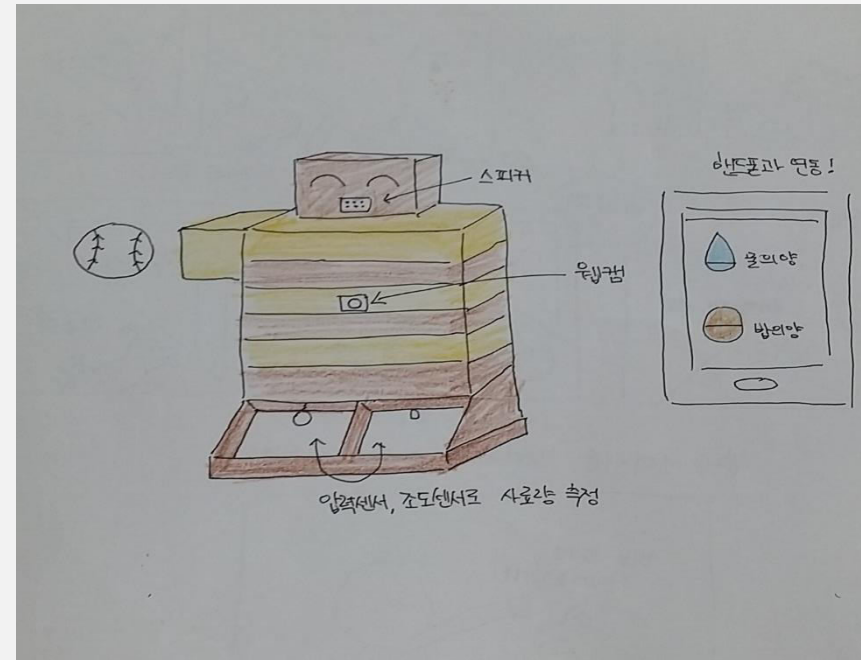 스피커
핸드폰과 연동!
물의양
웹캠
밥의양
압력센서, 조도센서로 사료량 측정